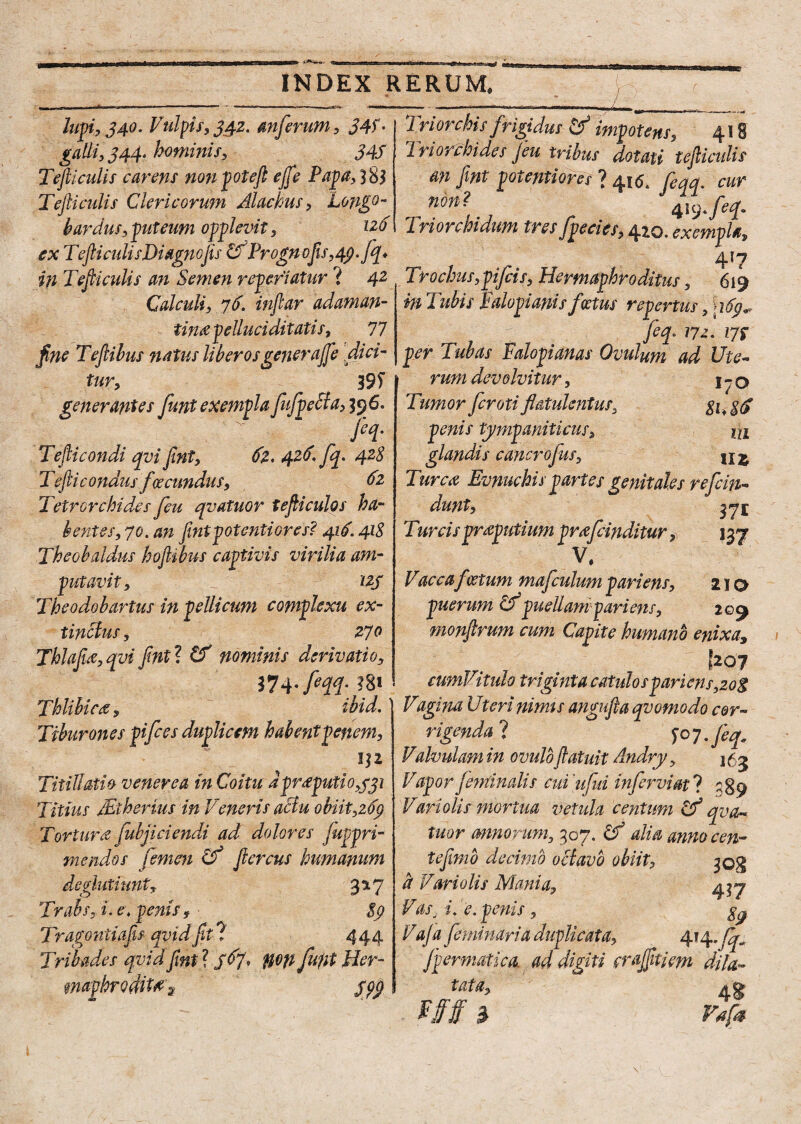 INDEX RERUM.
lupi, 340. Vulpis, 342. anserum, 345.
galli, 344. hominis, 345
Testiculis carens non potest esse Papa, 383
Testiculis Clericorum Alachus, Longo-
bardus, puteum opplevit, 126
ex Testiculis Diagnosis & Prognosis, 49. sq.
in Testiculis an Semen reperiatur? 42
Calculi, 76. instar adaman-
tinæ pelluciditatis, 77
sine Testibus natus liberos generasse dici-
tur, 395
generantes sunt exempla suspecta, 396.
seq.
Testicondi qvi sint, 62. 426. sq. 428
Testicondus fœcundus, 62
Tetrorchides seu qvatuor testiculos ha-
bentes, 70. an sint potentiores? 416. 418
Theobaldus hostibus captivis virilia am-
putavit, 125
Theodobartus in pellicum complexu ex-
tinctus, 270
Thlasiæ, qvi sint? & nominis derivatio,
374. seqq. 381
Thlibicæ, ibid.
Tiburones pisces duplicem habent penem,
132
Titillatio venerea in Coitu à præputio, 531
Titius Ætherius in Veneris actu obiit, 269
Torturæ subjiciendi ad dolores suppri-
mendos semen & stercus humanum
deglutiunt, 327
Trabs, i. e. penis, 89
Tragontiasis qvid sit? 444
Tribades qvid sint? 567. non sunt Her-
maphroditæ, 599
Triorchis frigidus & impotens, 418
Triorchides seu tribus dotati testiculis
an sint potentiores? 416. seqq. cur
non? 419. seq.
Triorchidum tres species, 420. exempla,
417
Trochus, piscis, Hermaphroditus, 619
in Tubis Falopianis fœtus repertus, 169.
seq. 172. 175
per Tubas Falopianas Ovulum ad Ute-
rum devolvitur, 170
Tumor scroti flatulentus, 81. 86
penis tympaniticus, 111
glandis cancrosus, 112
Turcæ Evnuchis partes genitales rescin-
dunt, 371
Turcis præputium præscinditur, 137
V.
Vacca fœtum masculum pariens, 210
puerum & puellam pariens, 209
monstrum cum Capite humanô enixa,
207
cum Vitulo triginta catulos pariens, 208
Vagina Uteri nimis angusta qvomodo cor-
rigenda? 507. seq.
Valvulam in ovulô statuit Andry, 163
Vapor seminalis cui usui inserviat? 389
Variolis mortua vetula centum & qva-
tuor annorum, 307. & alia anno cen-
tesimô decimô octavô obiit, 308
à Variolis Mania, 437
Vas, i. e. penis, 89
Vasa seminaria duplicata, 414. sq.
spermatica ad digiti crassitiem dila-
tata, 48
Ffff 3 Vasa